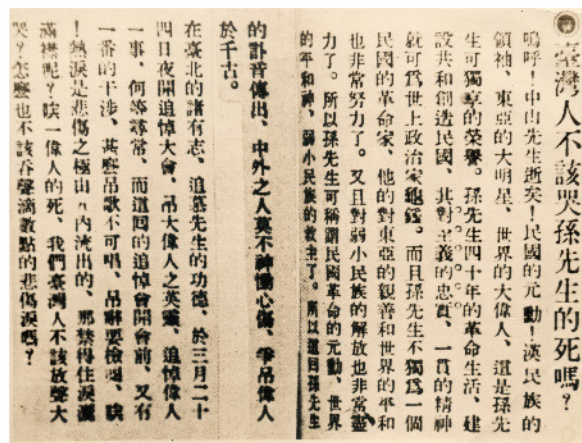 臺灣人不該哭孫先生的死嗎?
嗚呼!中山先生逝矣!民國的元勳!漢民族的
領袖、東亞的大明星、世界的大偉人、這是孫先
生可獨享的榮譽。孫先生四十年的革命生活、建
設共和創造民國、其對主義的忠實、一貫的精神
就可爲世上政治家龜鑑。而且孫先生不獨爲一個
民國的革命家、他的對東亞的親善和世界的平和
也非常努力了。又且對弱小民族的解放也非常盡
力了。所以孫先生可稱謂民國革命的元勳、世界
的平和神、弱小民族的救主了。所以這回孫先生
的訃音傳出、中外之人莫不神傷心傷、爭吊偉人
於千古。
在臺北的諸有志、追慕先生的功德、於三月二十
四日夜開追悼大會、吊大偉人之英靈、追悼偉人
一事、何等尋常、而這回的追悼會開會前、又有
一番的干涉、甚麼吊歌不可唱、吊辭要檢閱、咳
!熱淚是悲傷之極由 內流出的、那禁得住淚灑
滿襟呢?咳一偉人的死、我們臺灣人不該放聲大
哭?怎麼也不該吞聲滴數點的悲傷淚嗎?